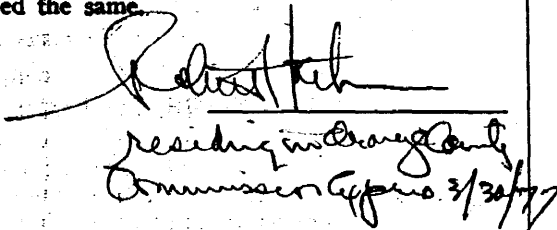 ed the same.
Robert
residing in Orange County
Commission Expires 3/30/77